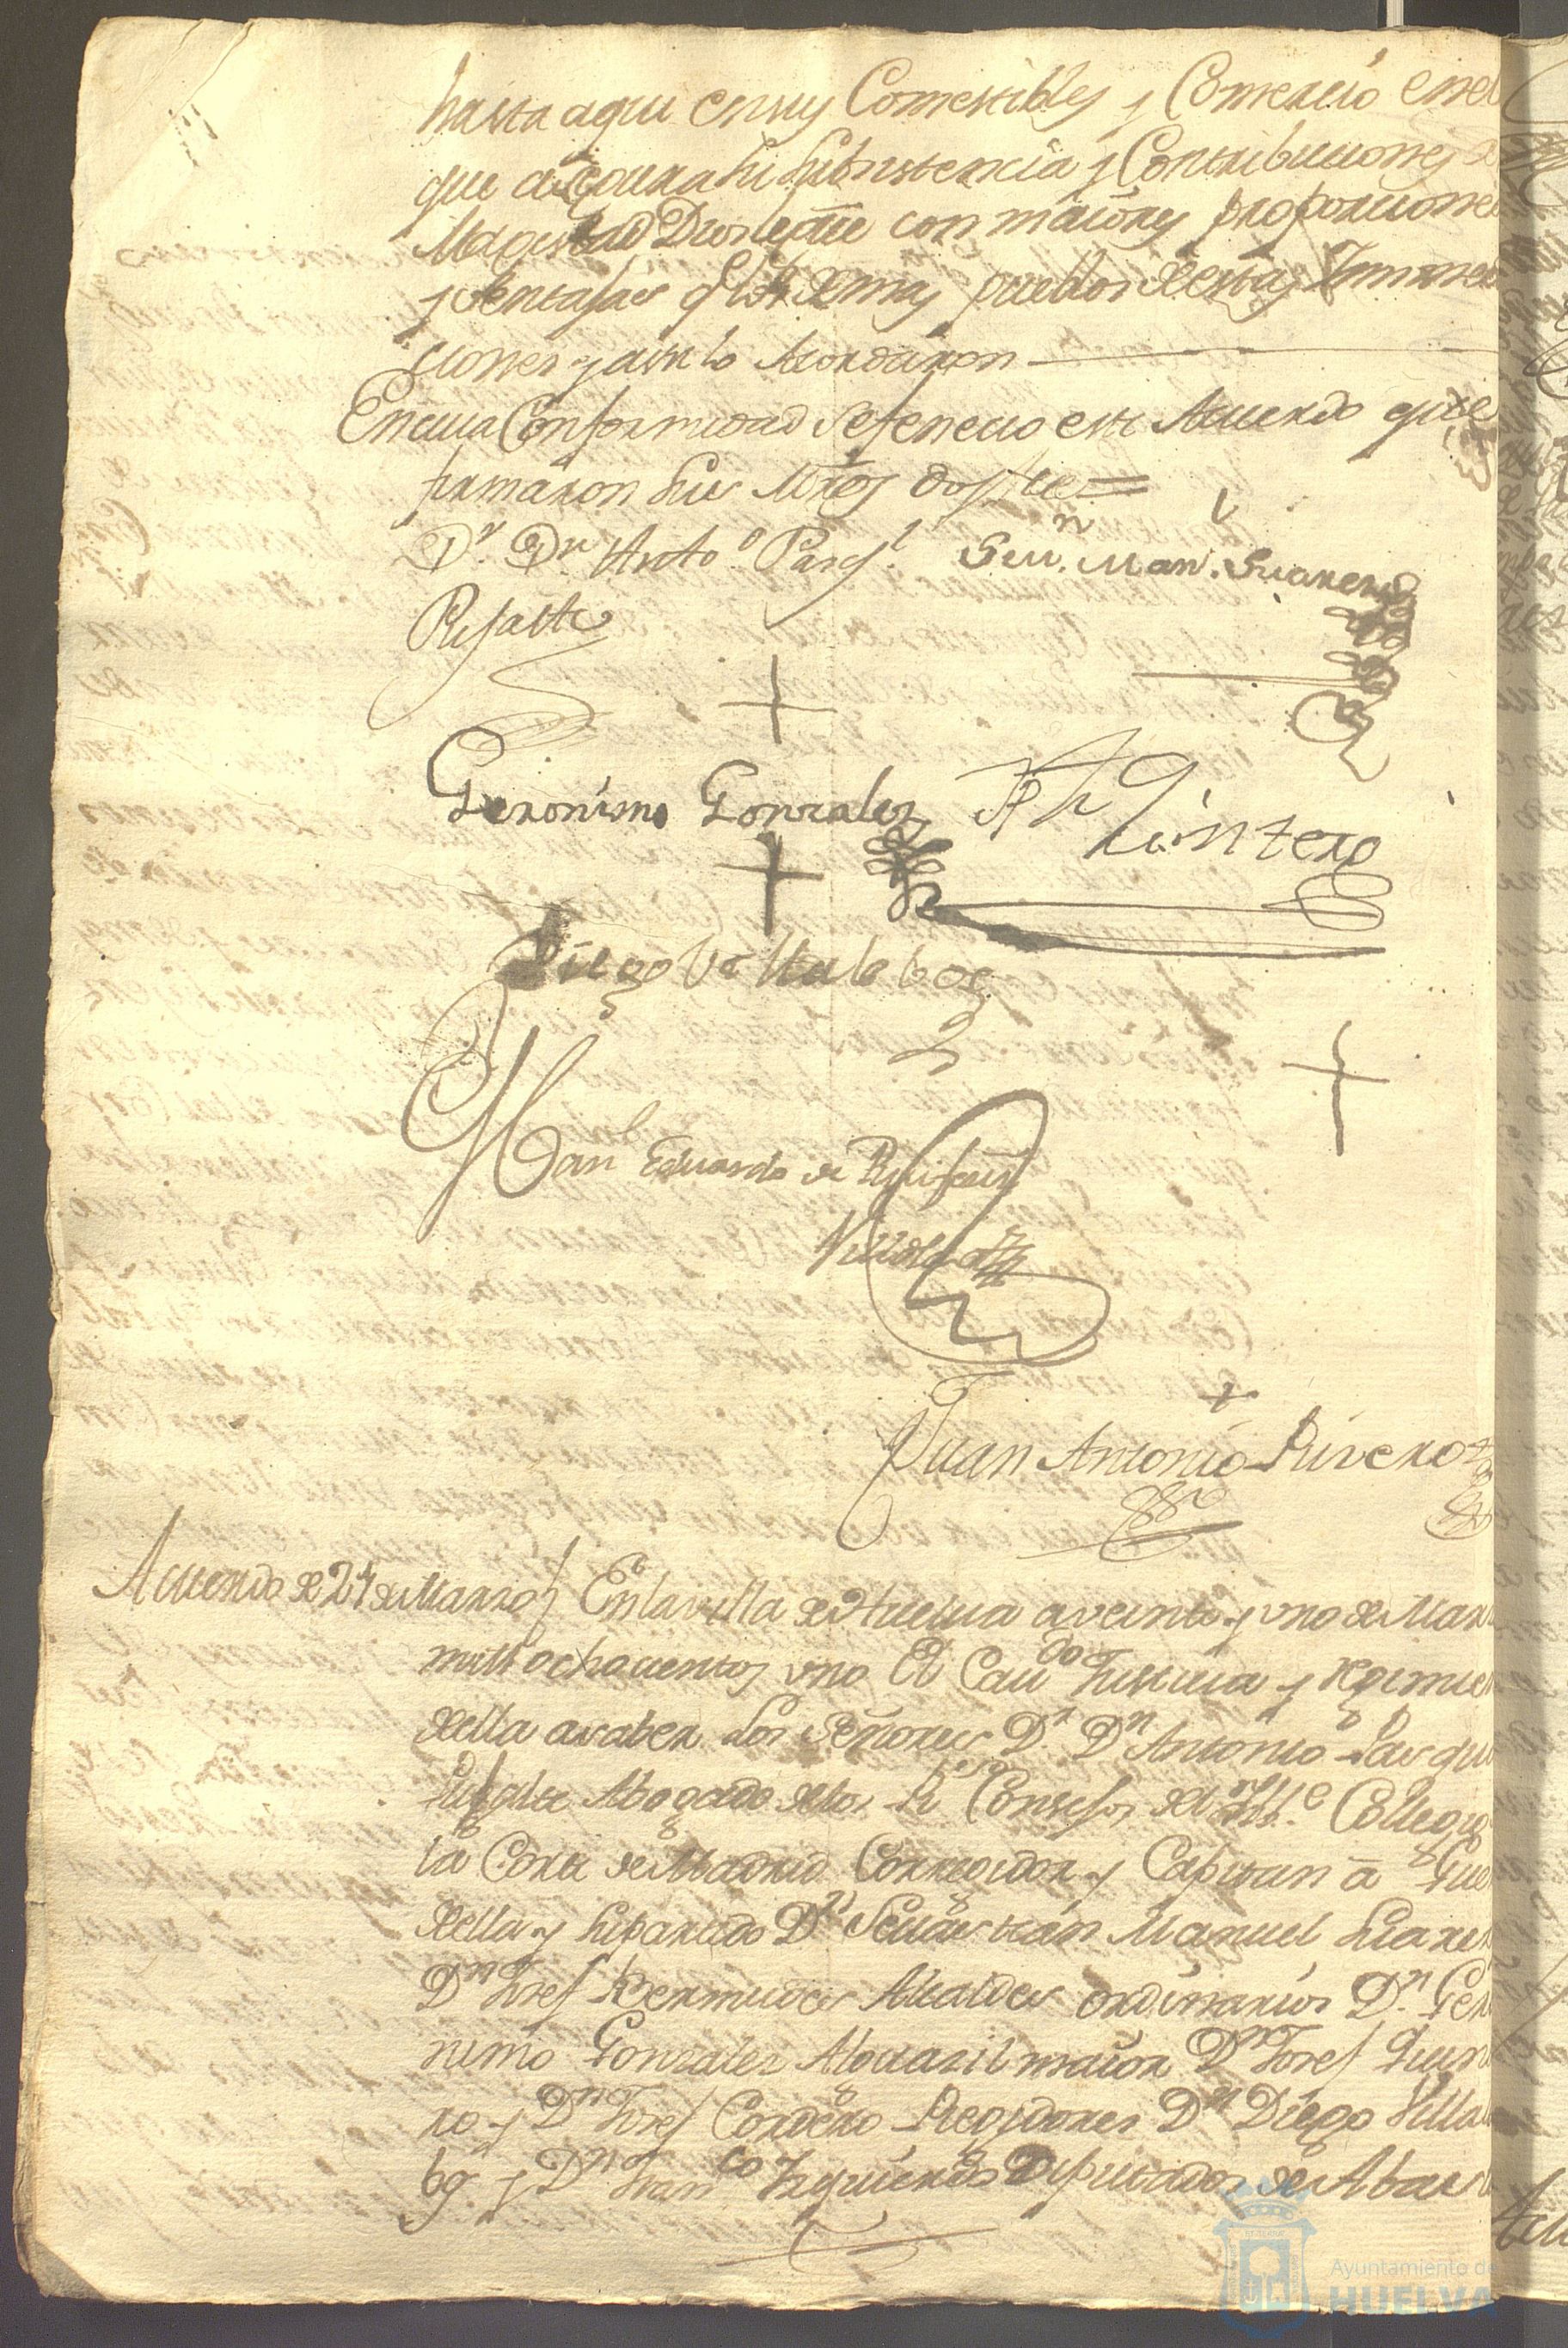 hasta aqui ensus Comestibles y Comercio en el
que asegura su subsistencia y Contribuciones
Magestad con maiores proporciones
y Ventajas q los demas pueblos de estas Inmed
ciones y assi lo Acordaron
En cuia Conformidad se fenecio este Acuerdo que
firmaron sus Mrds doy fee =
Dr. Dn Anto.º Pasql.
Sevn. Manl. Suarez
Risalte
Geronimo Gonzalez
Jph Quintero
Diego Villalobos
Manl Eduardo de
Juan Antonio Rivero
Acuerdo de 21 de Marzo
En la villa de Huelva a veinte y vno de Mar
mill ochocientos vno El Cavdo Justicia y regimie
della a saber Los Señores Dr Dn Antonio Pasqu
Risalte Abogado de los Rs Consejos del Ille Collegio
la Corte de Madrid Corregidor y Capitan a Gue
della y su partido Dn Sevastian Manuel Suarez
Dn Josef Bermudes Alcaldes ordinarios Dn Gero
nimo Gonzalez Alguazil maior Dn Josef Quint
ro y Dn Josef Cordero Regidores Dn Diego Villa
bos y Dn Franco Izquierdo Diputados de Abast
Ayuntamiento de
HUELVA